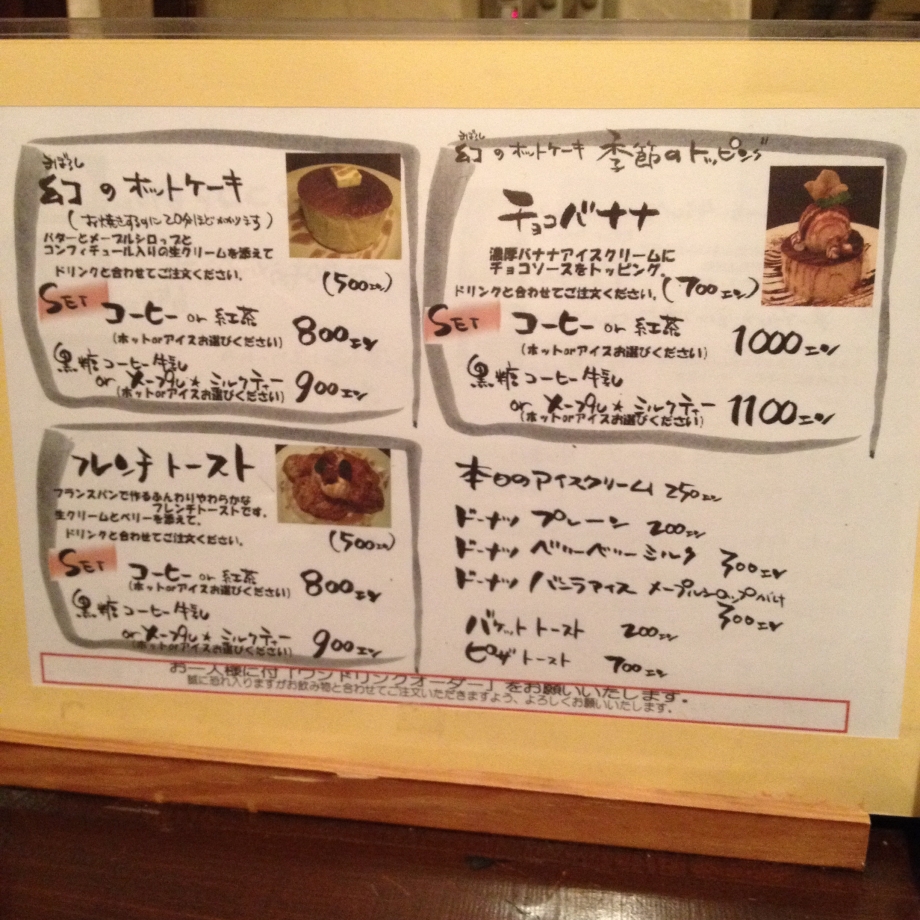 まぼろし
幻のホットケーキ
(お焼きするのに20分ほどかかります)
バターとメープルシロップと
コンフィチュール入りの生クリームを添えて
ドリンクと合わせてご注文ください。
(500エン)
SET コーヒー or 紅茶 800エン
(ホットorアイスお選びください)
黒糖コーヒー牛乳
or メープル★ミルクティー 900エン
(ホットorアイスお選びください)
フレンチトースト
フランスパンで作るふんわりやわらかな
フレンチトーストです。
生クリームとベリーを添えて。
ドリンクと合わせてご注文ください。
(500エン)
SET コーヒー or 紅茶 800エン
(ホットorアイスお選びください)
黒糖コーヒー牛乳
or メープル★ミルクティー 900エン
(ホットorアイスお選びください)
まぼろし
幻のホットケーキ 季節のトッピング
チョコバナナ
濃厚バナナアイスクリームに
チョコソースをトッピング。
ドリンクと合わせてご注文ください。(700エン)
SET コーヒー or 紅茶 1000エン
(ホットorアイスお選びください)
黒糖コーヒー牛乳
or メープル★ミルクティー 1100エン
(ホットorアイスお選びください)
本日のアイスクリーム 250エン
ドーナツ プレーン 200エン
ドーナツ ベリーベリーミルク 300エン
ドーナツ バニラアイス メープルシロップがけ
300エン
バケットトースト 200エン
ピザトースト 700エン
お一人様に付「ワンドリンクオーダー」をお願いいたします。
誠に恐れ入りますがお飲み物と合わせてご注文いただきますよう、よろしくお願いいたします。